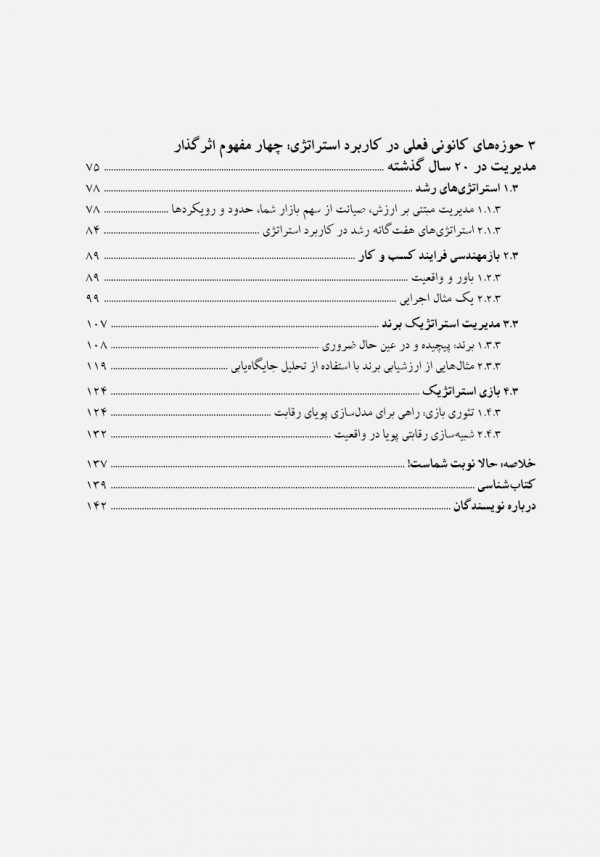 ۳ حوزه‌های کانونی فعلی در کاربرد استراتژی: چهار مفهوم اثرگذار
مدیریت در ۲۰ سال گذشته ........ ۷۵
۱.۳ استراتژی‌های رشد ........ ۷۸
۱.۱.۳ مدیریت مبتنی بر ارزش، صیانت از سهم بازار شما، حدود و رویکردها ........ ۷۸
۲.۱.۳ استراتژی‌های هفت‌گانه رشد در کاربرد استراتژی ........ ۸۴
۲.۳ بازمهندسی فرایند کسب و کار ........ ۸۹
۱.۲.۳ باور و واقعیت ........ ۸۹
۲.۲.۳ یک مثال اجرایی ........ ۹۹
۳.۳ مدیریت استراتژیک برند ........ ۱۰۷
۱.۳.۳ برند: پیچیده و در عین حال ضروری ........ ۱۰۸
۲.۳.۳ مثال‌هایی از ارزشیابی برند با استفاده از تحلیل جایگاه‌یابی ........ ۱۱۹
۴.۳ بازی استراتژیک ........ ۱۲۴
۱.۴.۳ تئوری بازی: راهی برای مدل‌سازی پویای رقابت ........ ۱۲۴
۲.۴.۳ شبیه‌سازی رقابتی پویا در واقعیت ........ ۱۳۲
خلاصه: حالا نوبت شماست! ........ ۱۳۷
کتاب‌شناسی ........ ۱۳۹
درباره نویسندگان ........ ۱۴۲